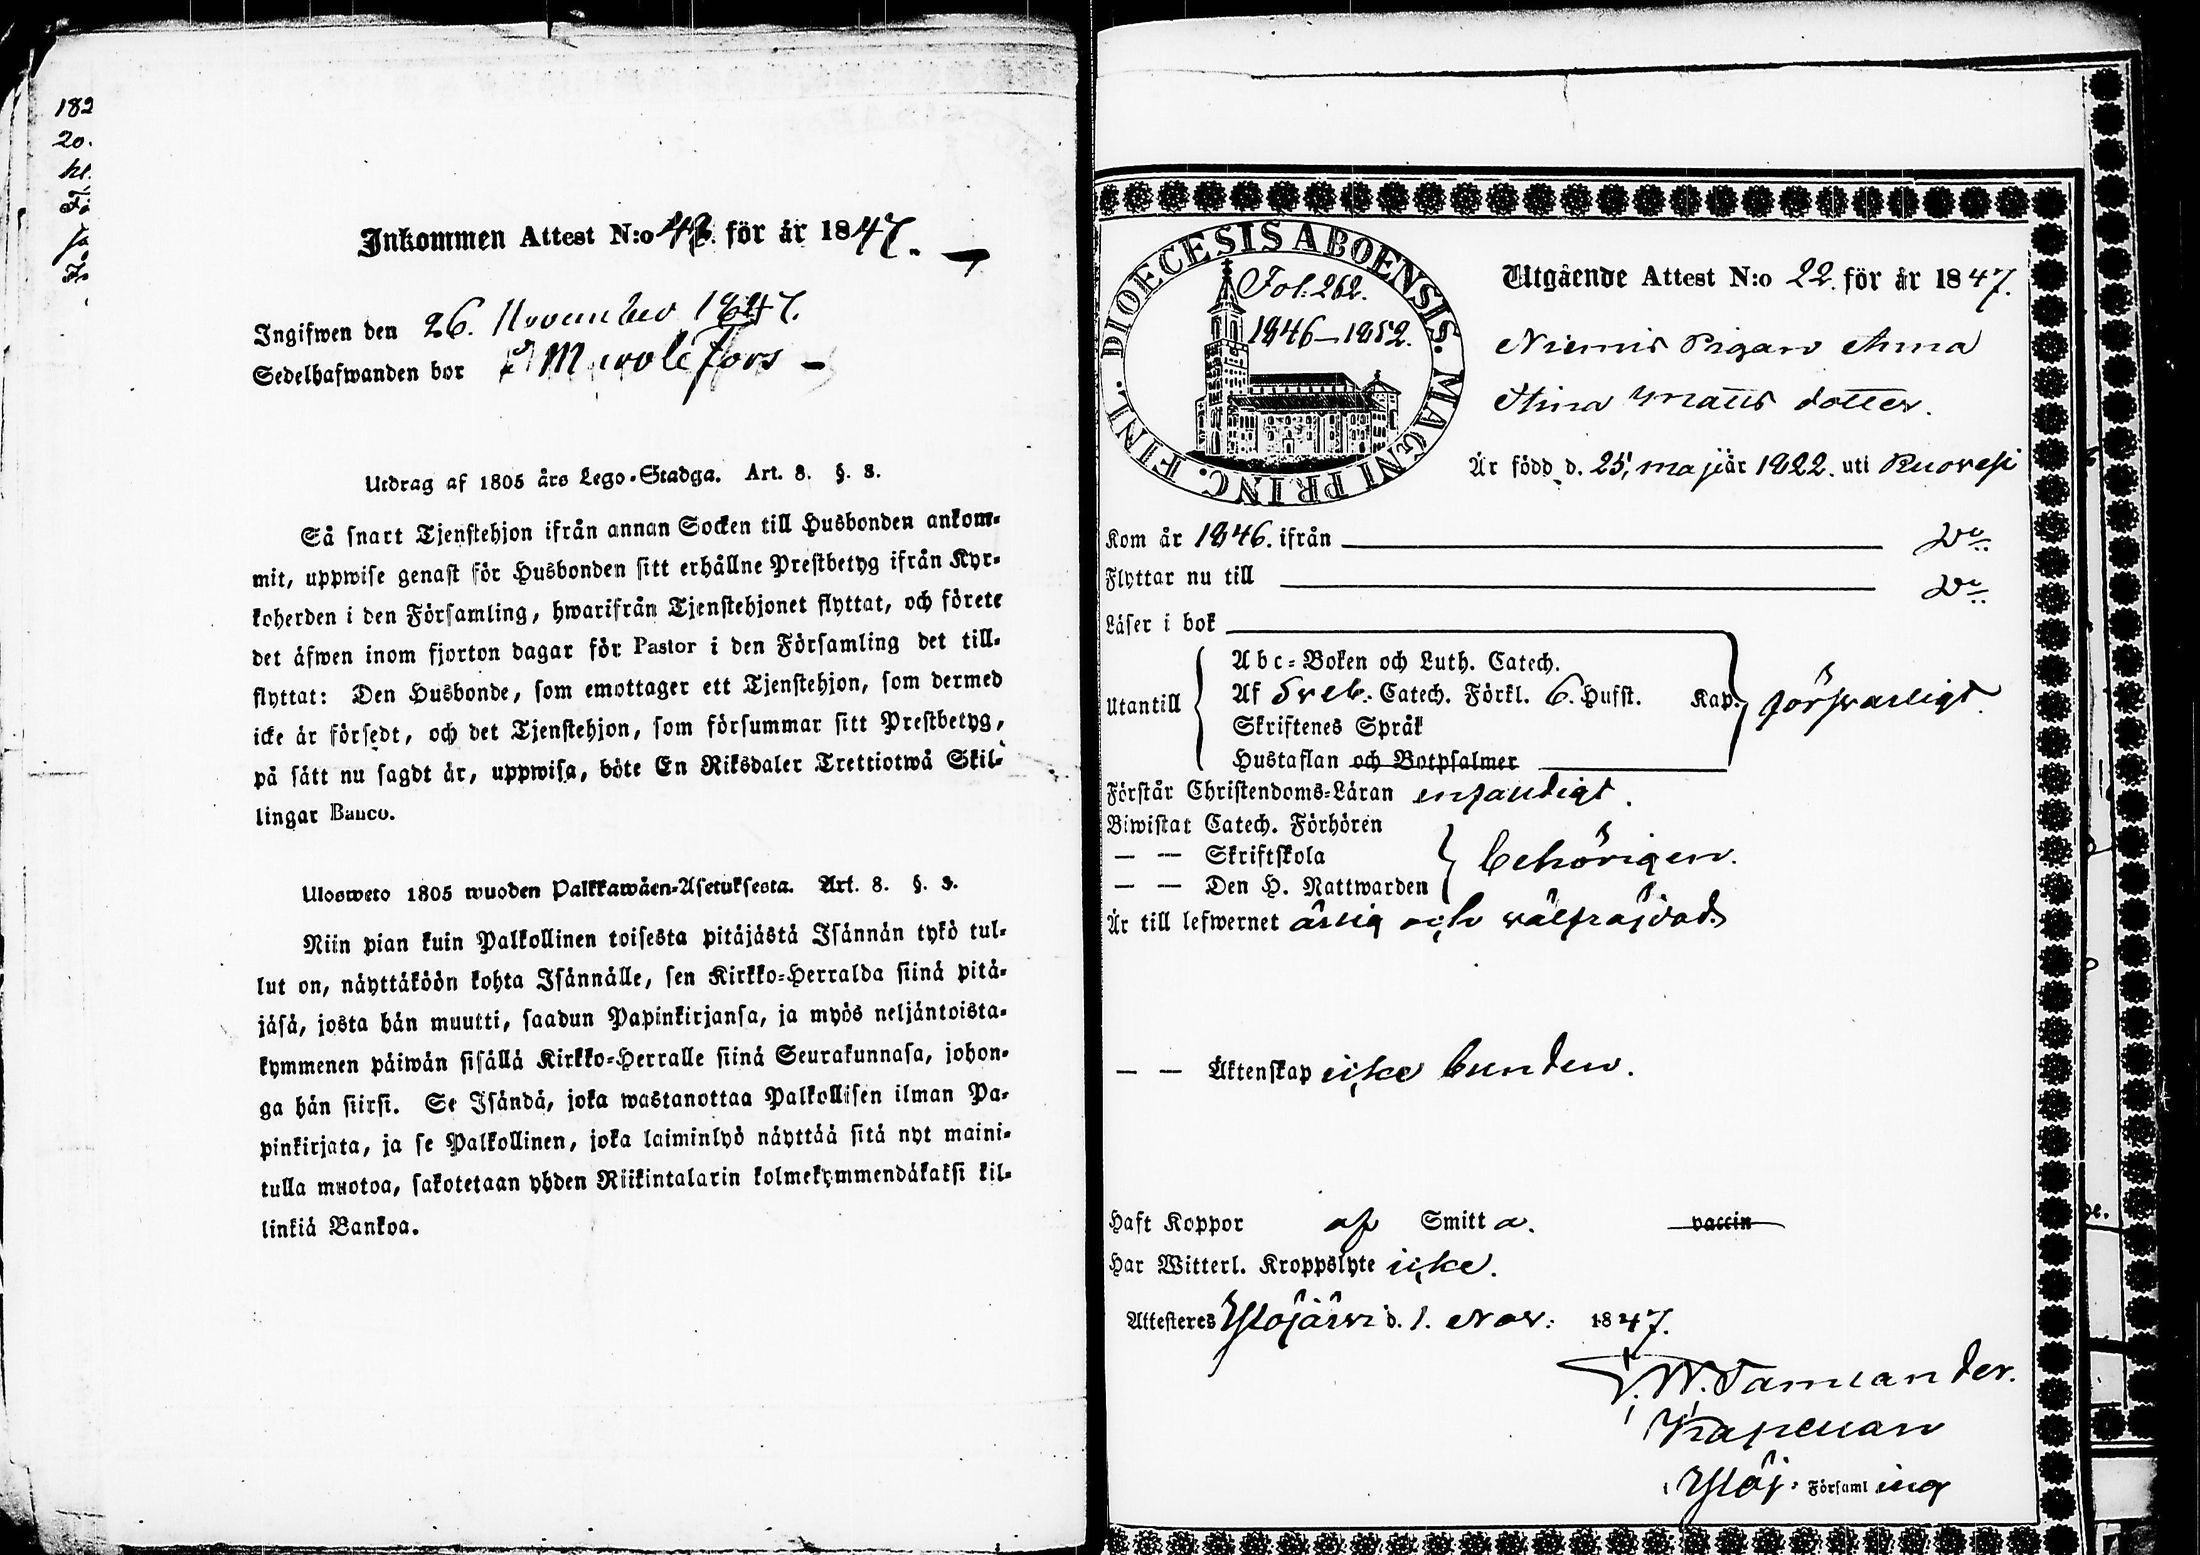 182
20.
Inkommen Attest N:o 43. för år 1847.
Ingifwen den 26. November 1847.
Sedelhafwanden bor i Murolefors
Utdrag af 1805 års Lego-Stadga. Art. 8. §. 3.
Så snart Tjenstehjon ifrån annan Socken till Husbonden ankom-
mit, uppwise genast för Husbonden sitt erhållne Prestbetyg ifrån Kyr-
koherden i den Församling, hwarifrån Tjenstehjonet flyttat, och förete
det äfwen inom fjorton dagar för Pastor i den Församling det till-
flyttat: Den Husbonde, som emottager ett Tjenstehjon, som dermed
icke är försedt, och det Tjenstehjon, som försummar sitt Prestbetyg,
på sätt nu sagdt är, uppwisa, böte En Riksdaler Trettiotwå Skil-
lingar Banco.
Ulosweto 1805 wuoden Palkkawäen-Asetuksesta. Art. 8. §. 3.
Niin pian kuin Palkollinen toisesta pitäjästä Isännän tykö tul-
lut on, näyttäköön kohta Isännälle, sen Kirkko-Herralda siinä pitä-
jäsä, josta hän muutti, saadun Papinkirjansa, ja myös neljäntoista-
kymmenen päiwän sisällä Kirkko-Herralle siinä Seurakunnasa, johon-
ga hän siirsi. Se Isändä, joka wastanottaa Palkollisen ilman Pa-
pinkirjata, ja se Palkollinen, joka laiminlyö näyttää sitä nyt maini-
tulla muotoa, sakotetaan yhden Riikintalarin kolmekymmendäkaksi kil-
linkiä Bankoa.
DIOECESIS ABOENSIS. MAGNI PRINC. FINL.
Fol. 262.
1846–1852.
Utgående Attest N:o 22. för år 1847.
Niemis Pigan Anna
Stina Matts dotter.
Är född d. 25, maji år 1822. uti Ruovesi
Kom år 1846. ifrån D:o
Flyttar nu till D:o
Läser i bok
Utantill
Abc-Boken och Luth. Catech.
Af Sveb: Catech. Förkl. 6. Hufst. Kap.
Skriftenes Språk
Hustaflan och Botpsalmer
försvarligt
Förstår Christendoms-Läran enfaldigt.
Biwistat Catech. Förhören
— — Skriftskola
— — Den H. Nattwarden
behörigen.
Är till lefwernet ärlig och välfräjdad.
— — Äktenskap icke bunden.
Haft Koppor af Smitta. vaccin
Har Witterl. Kroppslyte icke.
Attesteres Ylöjärvi d. 1. Nov: 1847.
W. Tamlander.
Kapellan
i Ylöj: Församling